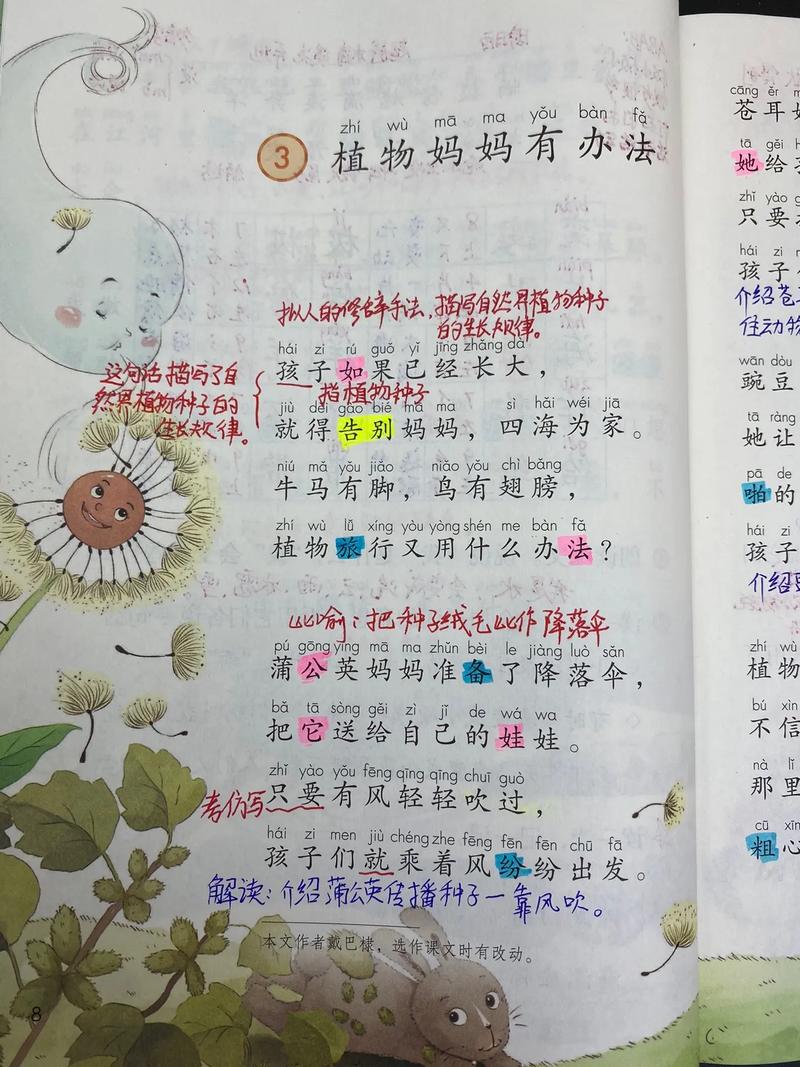 zhí wù mā ma yǒu bàn fǎ
3 植物妈妈有办法
拟人的修辞手法，描写自然界植物种子
的生长规律。
这句话描写了自
然界植物种子的
生长规律。
hái zi rú guǒ yǐ jīng zhǎng dà
孩子如果已经长大，
指植物种子
jiù děi gào bié mā ma sì hǎi wéi jiā
就得告别妈妈，四海为家。
niú mǎ yǒu jiǎo niǎo yǒu chì bǎng
牛马有脚，鸟有翅膀，
zhí wù lǚ xíng yòu yòng shén me bàn fǎ
植物旅行又用什么办法？
比喻：把种子绒毛比作降落伞
pú gōng yīng mā ma zhǔn bèi le jiàng luò sǎn
蒲公英妈妈准备了降落伞，
bǎ tā sòng gěi zì jǐ de wá wa
把它送给自己的娃娃。
zhǐ yào yǒu fēng qīng qīng chuī guò
考仿写
只要有风轻轻吹过，
hái zi men jiù chéng zhe fēng fēn fēn chū fā
孩子们就乘着风纷纷出发。
解读：介绍蒲公英传播种子一靠风吹。
本文作者戴巴棣，选作课文时有改动。
8
cāng ěr
苍耳
tā gěi
她给
zhǐ yào
只要
hái zi
孩子
介绍苍
住动物
wān dòu
豌豆
tā ràng
她让
pā de
啪的
hái zi
孩子
介绍
zhí wù
植物
bú xìn
不信
nà lǐ
那里
cū xīn
粗心